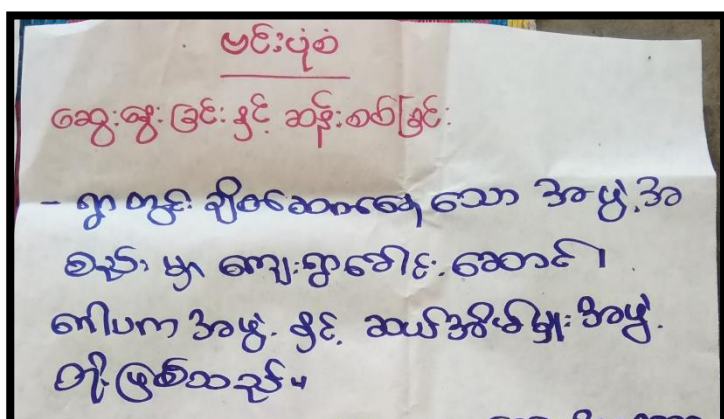 ဗင်းပုံစံ
ဆွေးနွေးခြင်းနှင့် ဆန်းစစ်ခြင်း
- ရွာတွင်း ချိတ်ဆောက်နေသော အဖွဲ့အ
စည်း မှာ ကျေးရွာခေါင်းဆောင်၊
ဓါပက အဖွဲ့ နှင့် ဆယ်အိမ်မှူးအဖွဲ့
တို့ဖြစ်သည်။